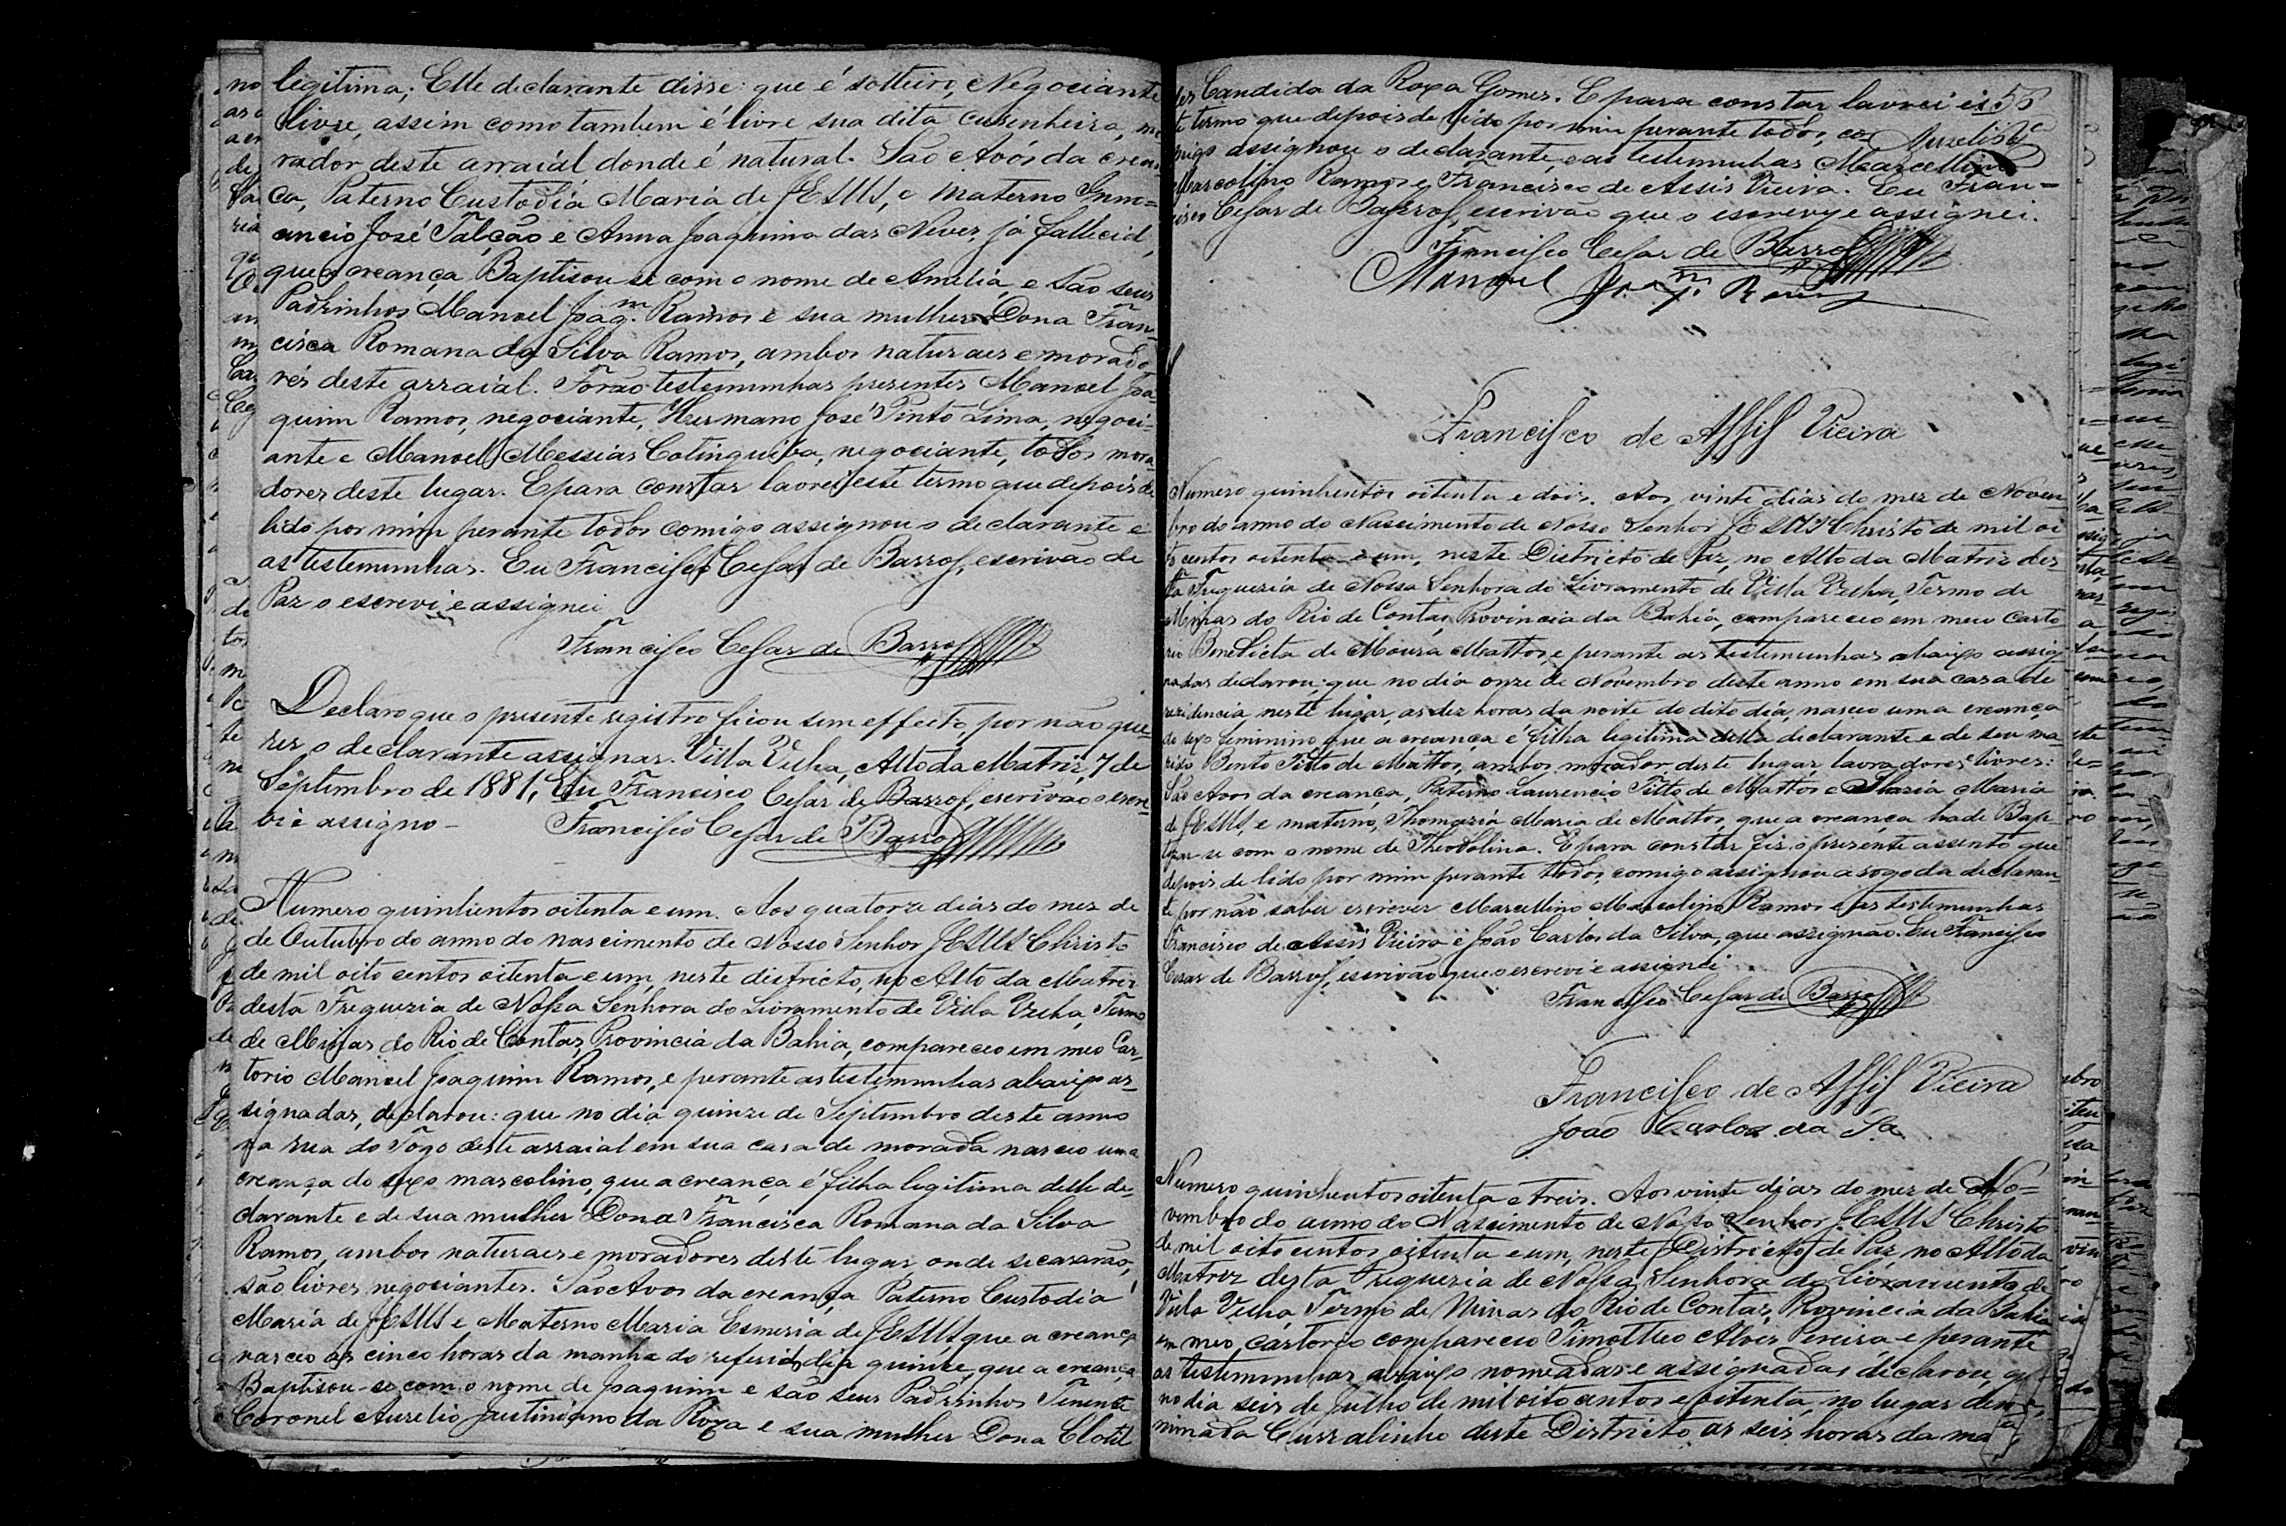 legitima; Elle declarante disse que é solteiro, Negociante
livre, assim como tambem é livre sua dita cusenheira, mo
rador deste arraial donde é natural. São Avós da crean
ça, Paterno Custodia Maria de JESUS, e materno Inno=
cencio José Falcão e Anna Joaquina das Neves, já fallecid,
que a creança Baptisou-se com o nome de Amelia, e são seus
Padrinhos Manoel Joaqm. Ramos e sua mulher Dona Fran
cisca Romana da Silva Ramos, ambos naturaes e morado
res deste arraial. Forão testemunhas presentes Manoel Joa-
quim Ramos, negociante, Hermano José Pinto Lima, negoci-
ante e Manoel Messias Cotinguiba, negociante, todos mora-
dores deste lugar. E para constar lavrei este termo que depois de
lido por mim perante todos comigo assignou o declarante e
as testemunhas. Eu Francisco Cesar de Barros, escrivão de
Paz o escrevi e assignei
Francisco Cesar de Barros
Declaro que o presente registro ficou sem effecto, por não que-
rer o declarante assignar. Villa Velha, Alto da Matriz, 7 de
Septembro de 1881, Eu Francisco Cesar de Barros, escrivão o escre
bi e assigno -
Francisco Cesar de Barros
Numero quinhentos oitenta e um. Aos quatorze dias do mez de
de Outubro do anno do nascimento de Nosso Senhor JESUS Christo
de mil oito centos oitenta e um, neste districto, no Alto da Matriz
desta Freguezia de Nossa Senhora do Livramento de Villa Velha, Termo
de Minas do Rio de Contas, Provincia da Bahia, compareceo em meo Car-
torio Manoel Joaquim Ramos, e perante as testemunhas abaixo as-
signadas, declarou: que no dia quinze de Septembro deste anno
na rua do Fogo deste arraial em sua casa de morada nasceo uma
creança do sexo mascolino, que a creança é filha legitima delle de-
clarante e de sua mulher Dona Francisca Romana da Silva
Ramos, ambos naturaes e moradores deste lugar onde se casarão,
são livres, negociantes. São Avos da creança Paterno Custodia
Maria de JESUS e Materno Maria Esmeria de JESUS, que a creança
nasceo as cinco horas da manha do referido dia quinze, que a creança
Baptisou-se com o nome de Joaquim e são seus Padrinhos Tenente
Coronel Aurelio Justiniano da Roxa e sua mulher Dona Clotil
des Candida da Roxa Gomes. E para constar lavrei es 56
te termo que depois de lido por mim perante todos, co
migo assignou o declarante, e as testemunhas Marcellino
Marcolino Ramos e Francisco de Assis Vieira. Eu Fran=
cisco Cesar de Barros, escrivão que o escrevy e assignei.
Francisco Cesar de Barros
Manoel Joaqm. Ramos
Francisco de Assis Vieira
Numero quinhentos oitenta e dois. Aos vinte dias do mez de Novem
bro do anno do Nascimento de Nosso Senhor JESUS Christo de mil oi
to centos oitenta e um, neste Districto de Paz, no Alto da Matriz des
ta Freguezia de Nossa Senhora do Livramento de Villa Velha, Termo de
Minas do Rio de Contas, Provincia da Bahia, compareceo em meu Carto
rio Benedicta de Moura Mattos, e perante as testemunhas abaixo assig
nadas declarou, que no dia onze de Novembro deste anno em sua casa de
rezidencia neste lugar, as dez horas da noite do dito dia, nasceo uma creança
do sexo feminino que a creança é filha legitima della declarante e de seu ma-
rido Bento Titto de Mattos, ambos morador deste lugar, lavradores e livres:
São Avos da creança, Paterno Laurencio Titto de Mattos e Maria Maria
de JESUS, e materno, Thomazia Maria de Mattos, que a creança hade Bap-
tizar-se com o nome de Theodolina. E para constar fiz o presente assento que
depois de lido por mim perante todos, comigo assignou a rogo da declaran
te por não saber escrever Marcellino Marcolino Ramos e as testemunhas
Francisco de Assis Vieira e João Carlos da Silva, que assignão. Eu Francisco
Cesar de Barros, escrivão que o escrevi e assignei
Francisco Cesar de Barros
Francisco de Assis Vieira
João Carlos da Sa
Numero quinhentos oitenta e treis. Aos vinte dias do mez de No=
vembro do anno do Nascimento de Nosso Senhor JESUS Christo
de mil oito centos oitenta e um, neste Districto de Paz, no Alto da
Matriz desta Freguezia de Nossa Senhora do Livramento de
Villa Velha, Termo de Minas do Rio de Contas, Provincia da Bahia
em meo cartorio compareceo Timotheo Alves Pereira e perante
as testemunhas abaixo nomeadas e assignadas declarou, que
no dia seis de Julho de mil oito centos e oitenta, no lugar deno
minada Curralinho deste Districto as seis horas da ma